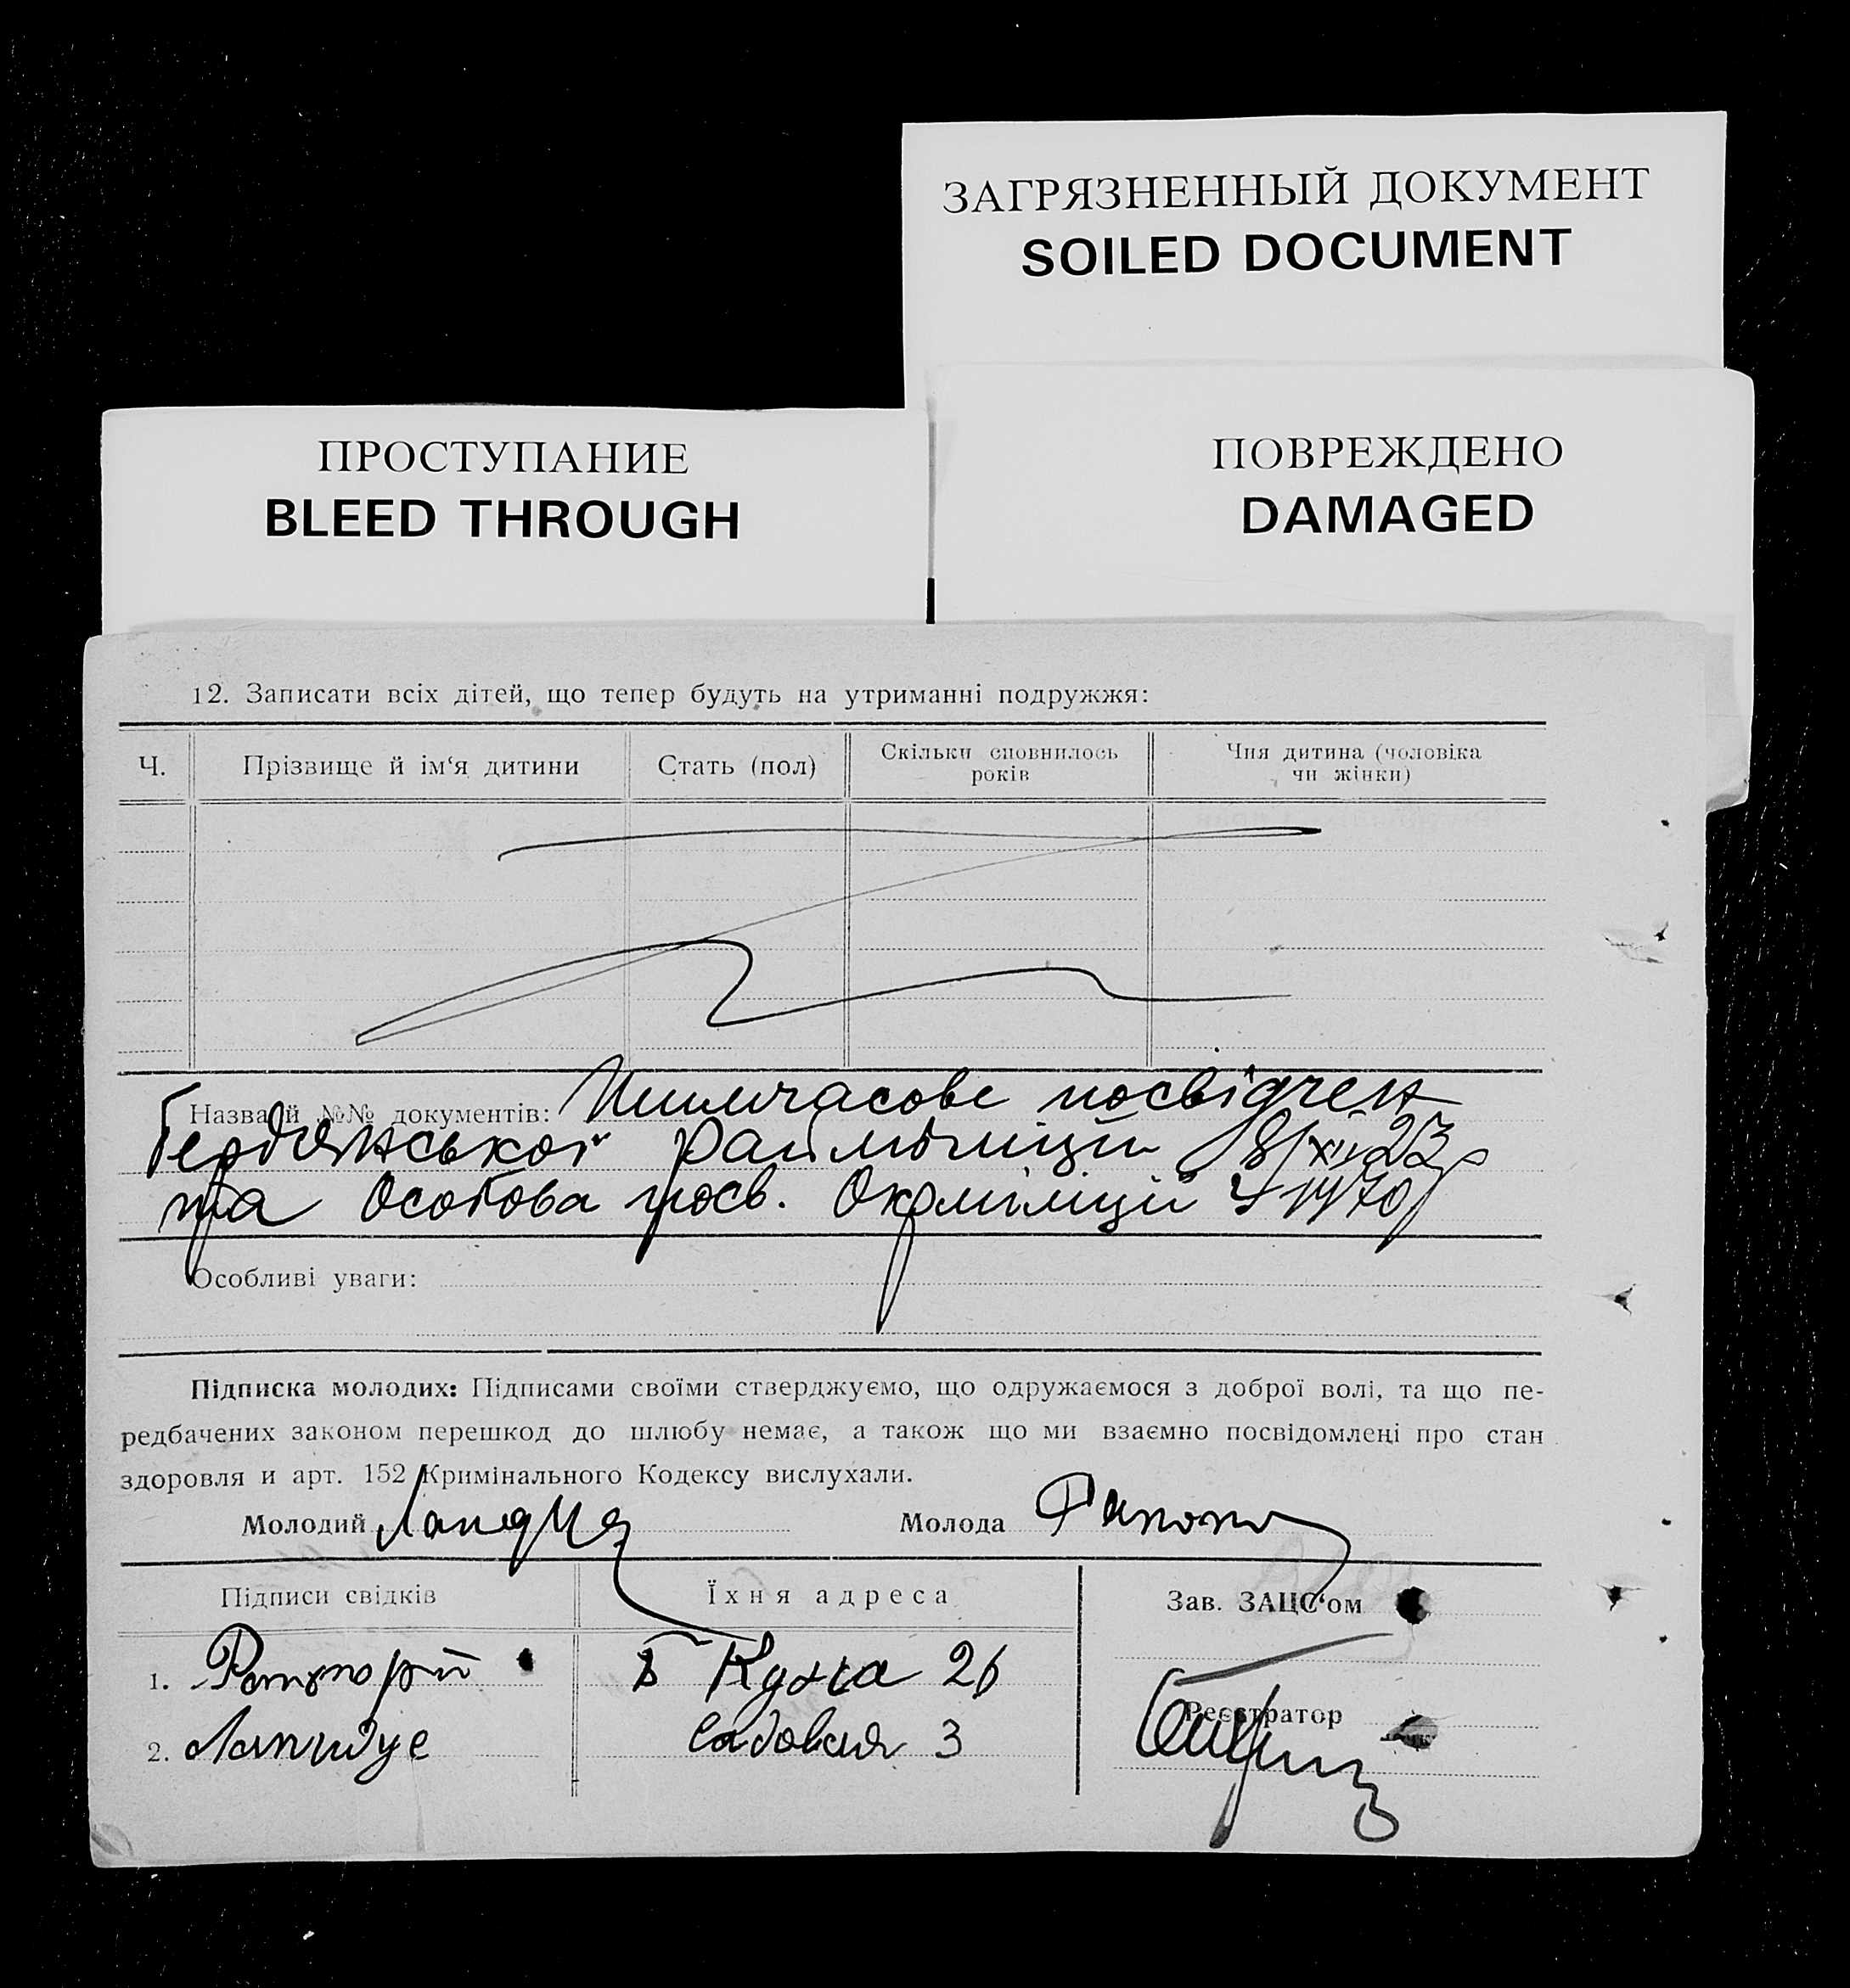 ЗАГРЯЗНЕННЫЙ ДОКУМЕНТ
SOILED DOCUMENT
ПРОСТУПАНИЕ
BLEED THROUGH
ПОВРЕЖДЕНО
DAMAGED
12. Записати всіх дітей, що тепер будуть на утриманні подружжя:
Ч. Прізвище й ім‘я дитини Стать (пол) Скільки сповнилось років Чия дитина (чоловіка чи жінки)
Назва й №№ документів: посвідчен
Бердянської райміліції
та Особова посв. Окрміліції
Особливі уваги:
Підписка молодих: Підписами своїми стверджуємо, що одружаємося з доброї волі, та що пе-
редбачених законом перешкод до шлюбу немає, а також що ми взаємно посвідомлені про стан
здоровля и арт. 152 Кримінального Кодексу вислухали.
Молодий Молода
Підписи свідків Їхня адреса Зав. ЗАЦС‘ом
1. 26
Реєстратор
2. Садовая 3